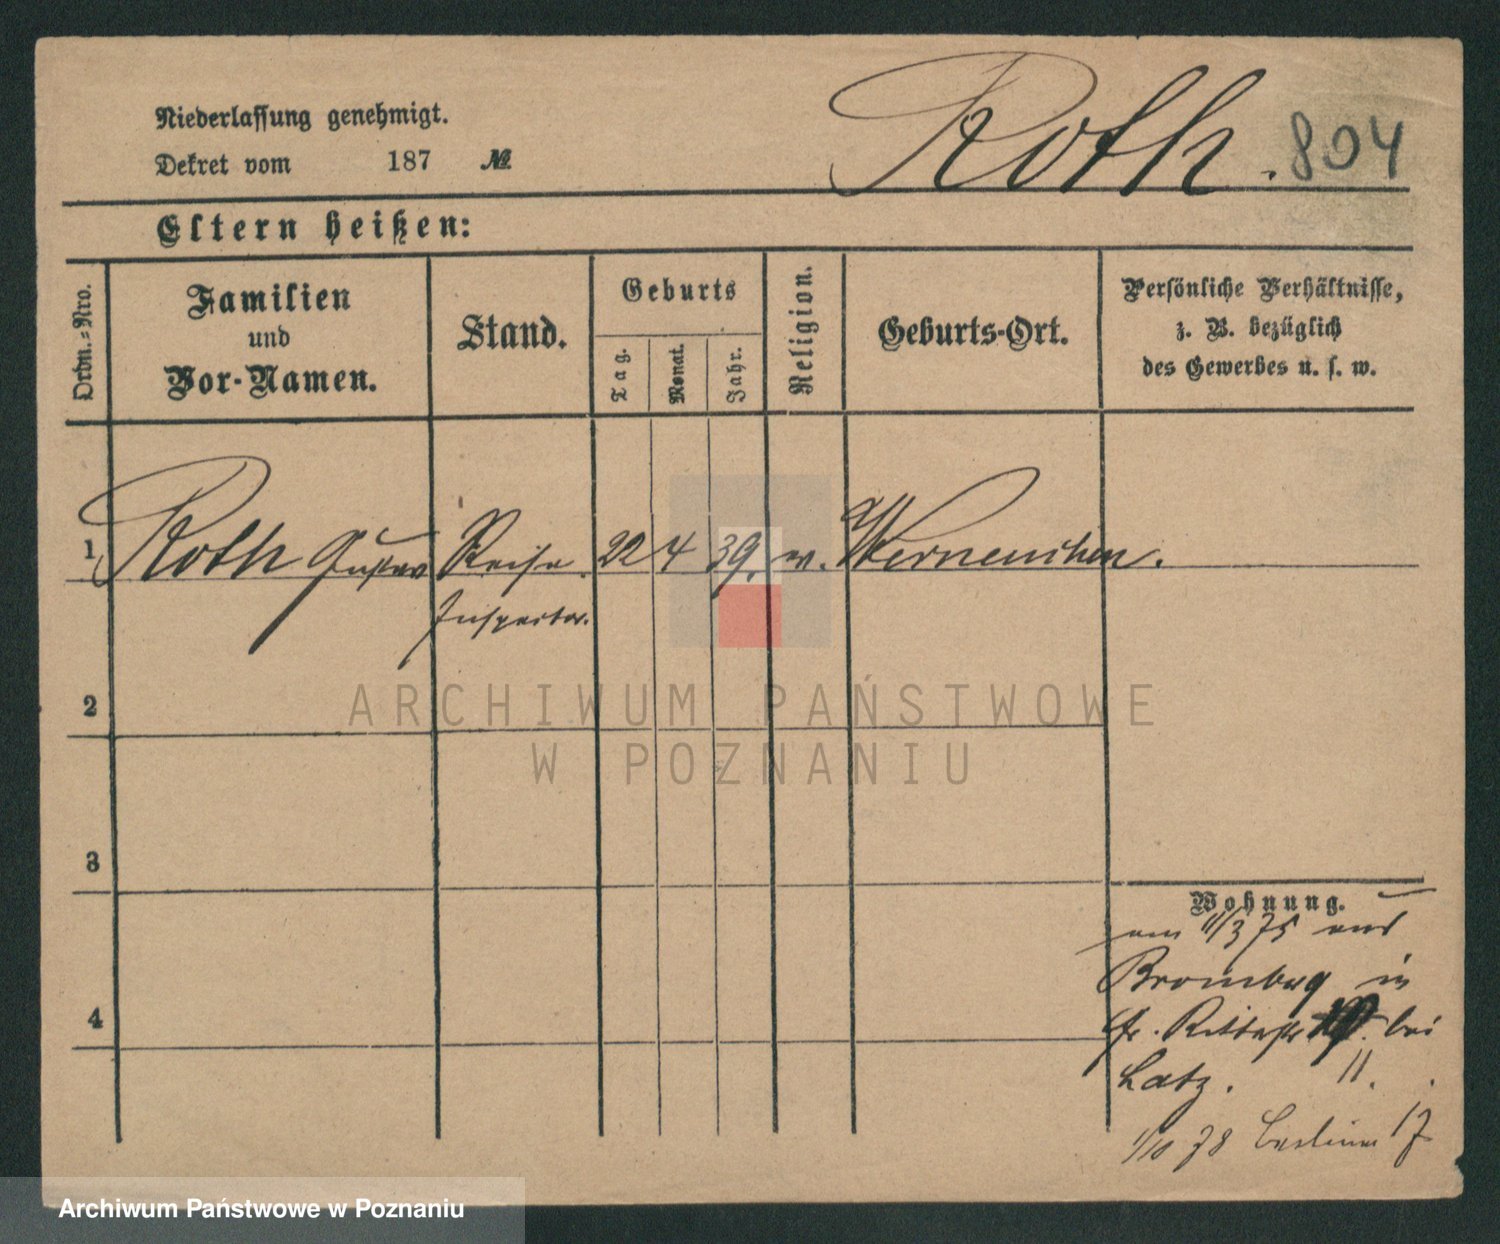 Niederlassung genehmigt.
Dekret vom 187 №
Roth. 804
Eltern heißen:
Ordn.-Nro.
Familien
und
Vor-Namen.
Stand.
Geburts
Tag.
Monat.
Jahr.
Religion.
Geburts-Ort.
Persönliche Verhältnisse,
z. B. bezüglich
des Gewerbes u. s. w.
1 Roth Gustav Reise 22 4 39. Werneuchen.
Inspector.
2
3
4
Wohnung.
am 11/3 75 aus
Bromberg in
gr. Ritterstr bei
Latz. 11.
1/10 78 Berliner 17
ARCHIWUM PAŃSTWOWE
W POZNANIU
Archiwum Państwowe w Poznaniu